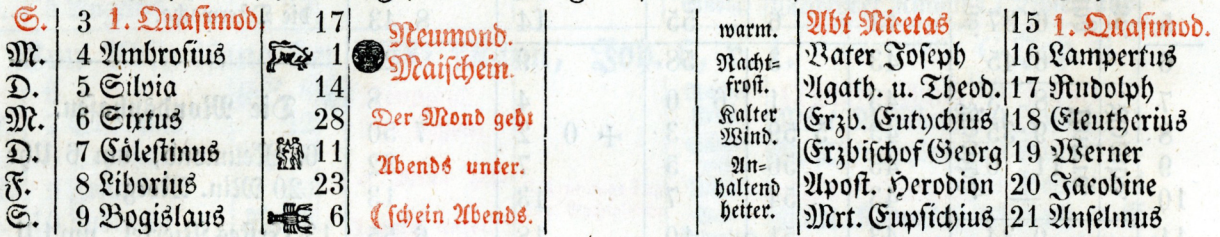 S. 3 1. Quasimod. 17 Neumond. warm. Abt Nicetas 15 1. Quasimod.
M. 4 Ambrosius 1 Maischein. Nacht= Vater Joseph 16 Lampertus
D. 5 Silvia 14 frost. Agath. u. Theod. 17 Rudolph
M. 6 Sixtus 28 Der Mond geht Kalter Erzb. Eutychius 18 Eleutherius
D. 7 Cölestinus 11 Abends unter. Wind. Erzbischof Georg 19 Werner
F. 8 Liborius 23 An= haltend Apost. Herodion 20 Jacobine
S. 9 Bogislaus 6 ( schein Abends. heiter. Mrt. Eupsichius 21 Anselmus